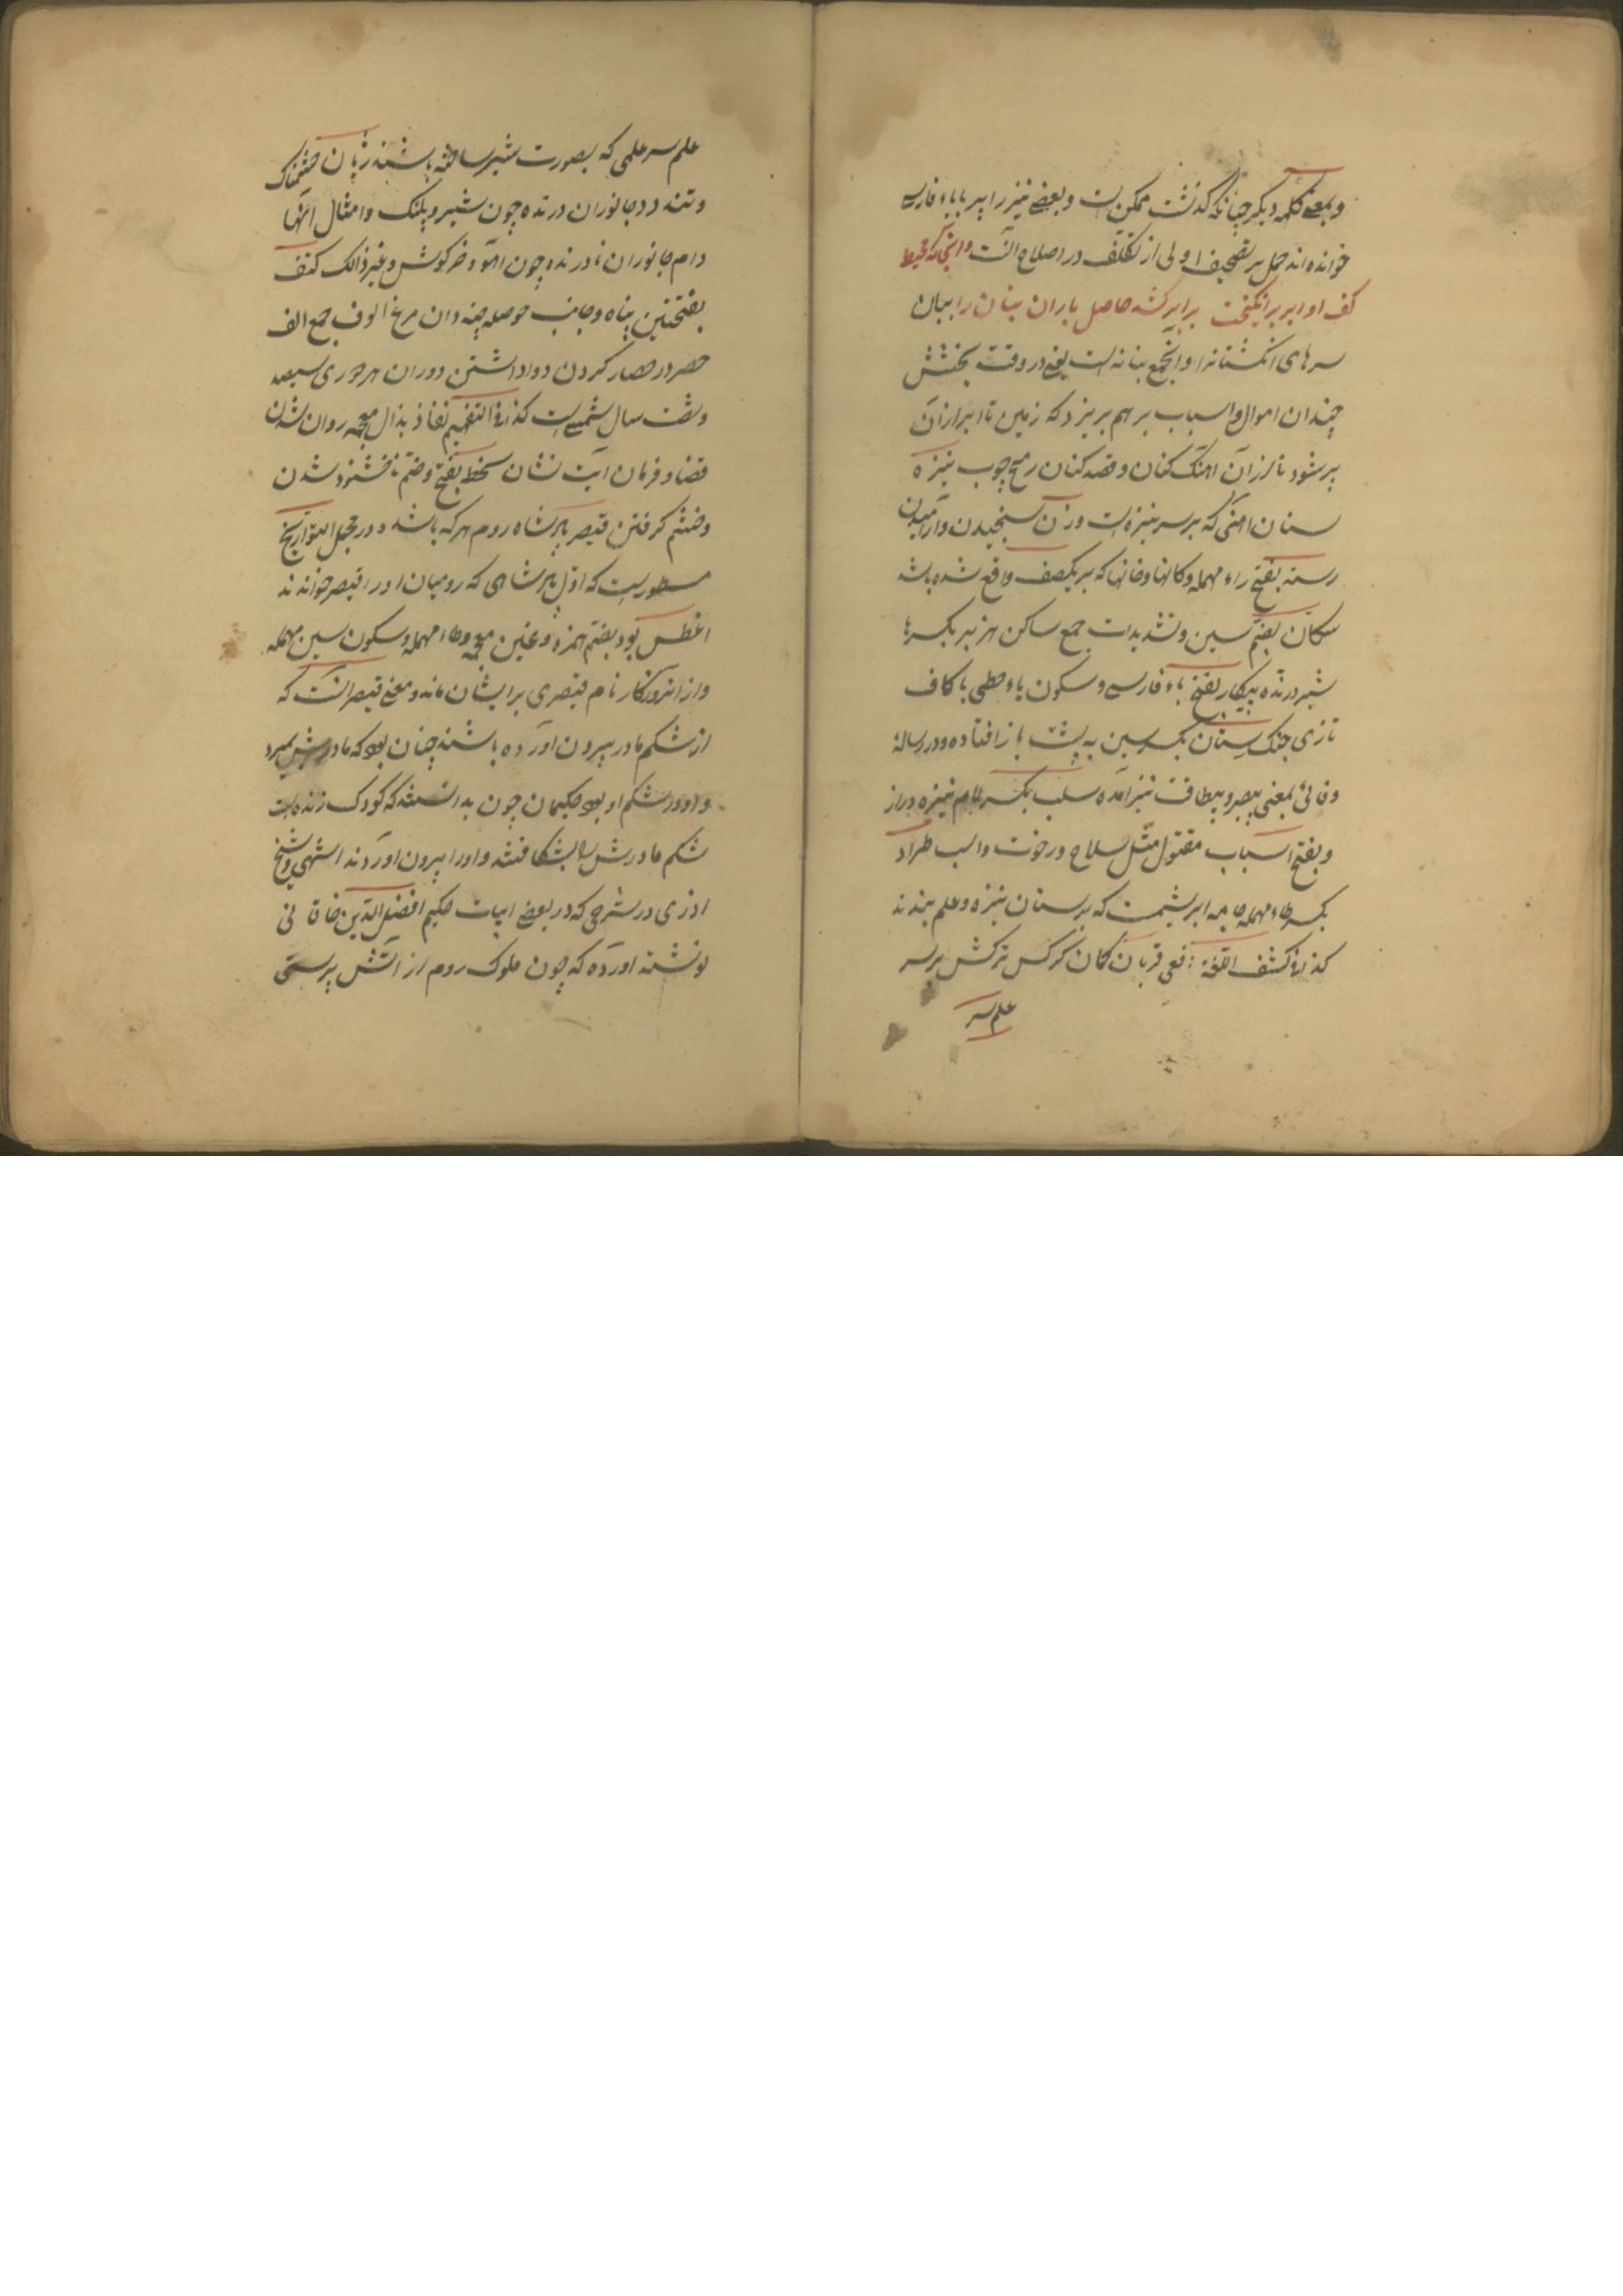 و بمعنی کلمه دیکر چنانکه کذشت ممکن است و بعضی نیز را پیر بابا فارسی
خوانده اند حمل بر تصحیف اولی از تکلف در اصلاح انست و انجا که محیط
کف او ابر برانکیخت برابر کشه حاصل باران بنان را بیان
سرهای انکشتانرا و انجمع بنانه است یعنی در وقت بخشش
چندان اموال و اسباب بر هم بریزد که زمین تا ابر ازان
پر شود نالرزان اهنک کنان و قصد کنان رمح چوب نیزه
سنان اهنی که بر سر نیزه است وزن سنجیدن و آرامیدن
رسته بفتح راء مهمله دکانها و خانها که بر یکصف واقع شده باشد
سکان بضم سین و تشدیدات جمع ساکن هزبر بکسرها
شیر درنده پیکار بفتح باء فارسی و سکون یاء حطی با کاف
تازی جنک ستان بکسر سین به پشت باز افتاده و در رسالهٔ
وفائی بمعنی بیصبر و بیطاقت نیز آمده سلب بکسر لام نیزه دراز
و بفتح اسباب مقتول مثل سلاح و رخوت و اسب طراد
بکسر طاء مهمله جامه ابریشمست که بر سنان نیزه و علم بندند
کذا فی کشف اللغة افعی قربان کمان کرکس ترکش بر سر
علم سر
علم سر علمی که بصورت شیر ساخته باشند ژیان خشمناک
و تند دد جانوران درنده چون شیر و پلنک و امثال انها
دام جانوران نادرنده چون اهو و خرکوش و غیر ذالک کنف
بفتحتین پناه و جانب حوصله چینه دان مرغ الوف جمع الف
حصر در حصار کردن و واداشتن دوران هر دوری سیصد
و شصت سال شمسی است کذا فی التفهیم نفاذ بذال معجمه روان شدن
قضا و فرمان آیت نشان سخط بفتح و ضم ناخشنود شدن
و خشم کرفتن قیصر پادشاه روم هر که باشد و در مجمل التواریخ
مسطور است که اول پادشاهی که رومیان او را قیصر خواندند
اغطس بود بضم همزه و غین معجمه و طاء مهمله و سکون سین مهمله
و از انروزکار نام قیصری بر ایشان ماند و معنی قیصر انست که
از شکم مادر بیرون آورده باشند چنان بود که مادرش بمرد
و او در شکم او بود حکیمان چون بدانستند که کودک زنده است
شکم مادرش را بشکافتند و او را بیرون اوردند انتهی و شیخ
اذری در شرحی که در بعضی ابیات حکیم افضل الدین خاقانی
نوشته اورده که چون ملوک روم از اتش پرستی